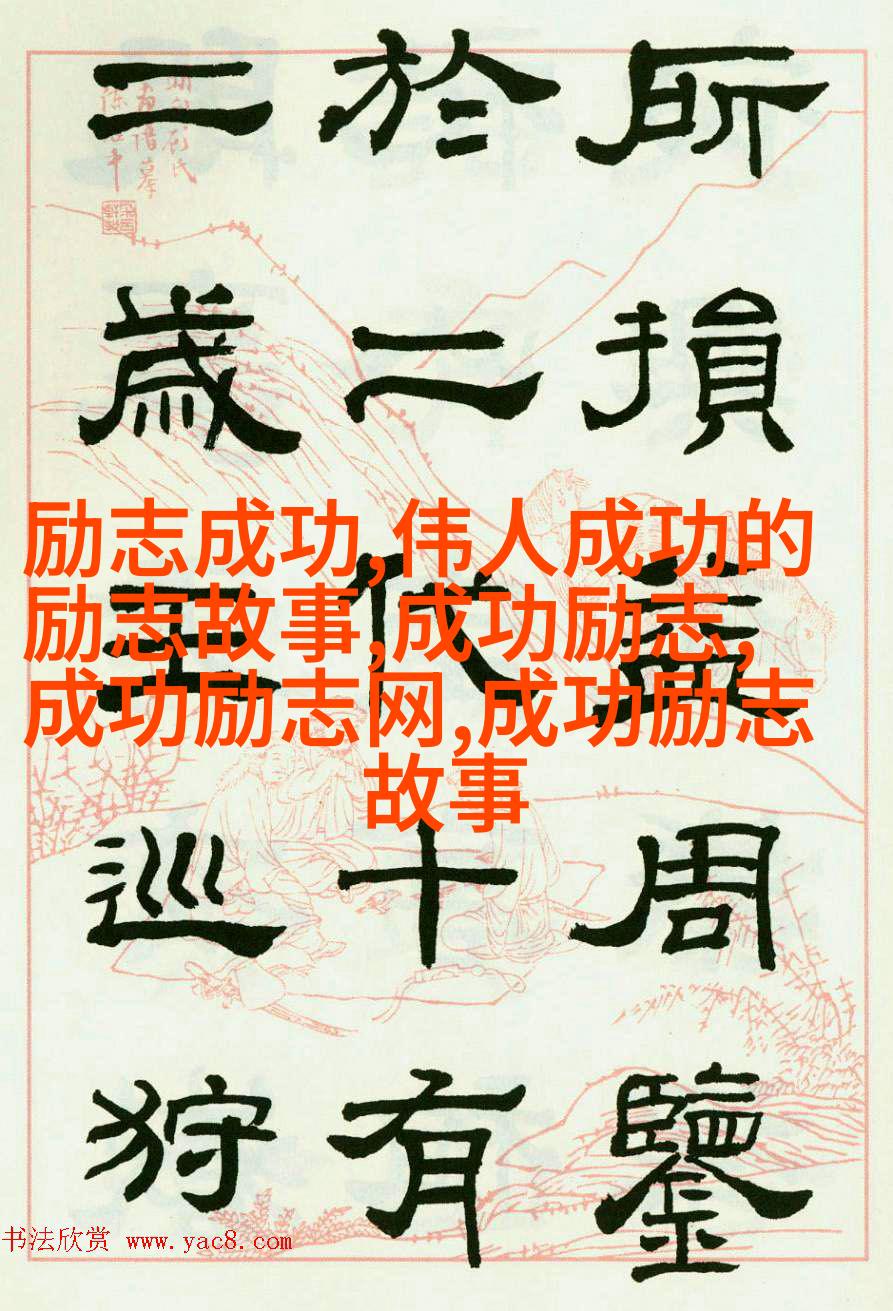 所損益周鑒
於二代十有
二歲王巡狩
励志成功,伟人成功的
励志故事,成功励志,
成功励志网,成功励志
故事
书法欣赏 www.yac8.com